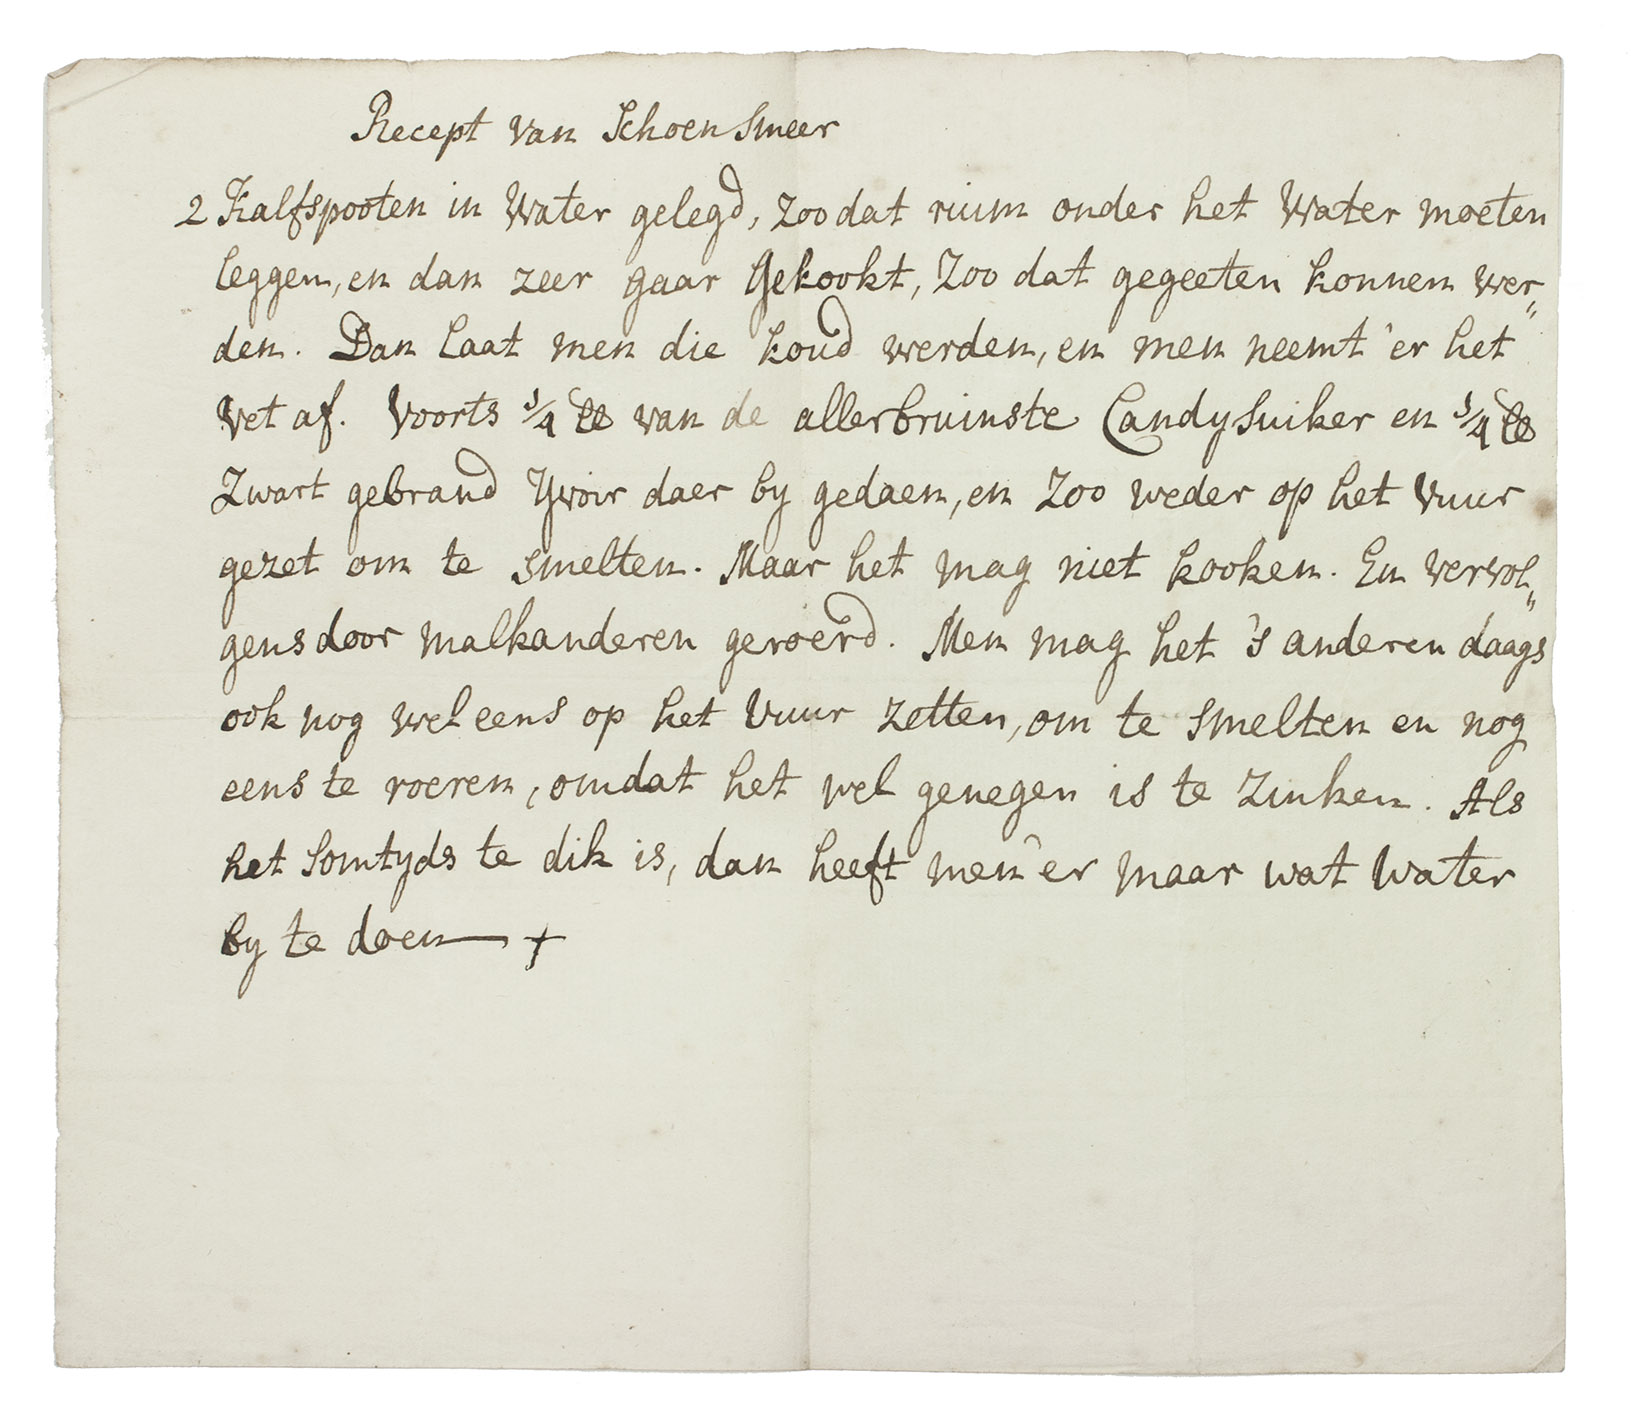 Recept van Schoensmeer
2 Kalfspooten in Water gelegd, zoodat ruim onder het Water moeten
leggen, en dan zeer gaar gekookt, Zoo dat gegeeten konnen wer„
den. Dan laat men die koud werden, en men neemt 'er het
Vet af. Voorts 1/4 ℔ van de allerbruinste Candysuiker en 1/4 ℔
Zwart gebrand Yvoir daer by gedaen, en Zoo weder op het Vuur
gezet om te smelten. Maar het mag niet kooken. En vervol„
gens door malkanderen geroerd. Men mag het 's anderen daags
ook nog wel eens op het Vuur zetten, om te smelten en nog
eens te roeren, omdat het wel genegen is te Zinken. Als
het somtyds te dik is, dan heeft men 'er maar wat Water
by te doen — +